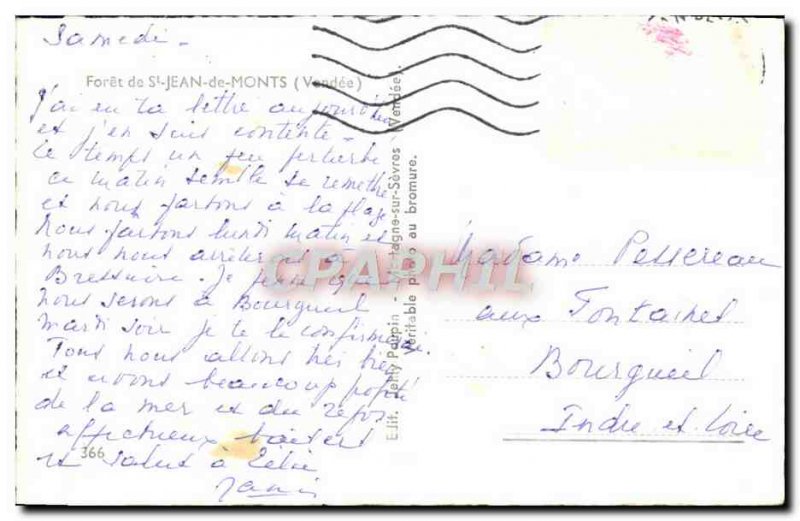 Samedi -
Forêt de St-JEAN-de-MONTS (Vendée)
J'ai eu ta lettre aujourd'hui
et j'en suis contente -
Le temps un peu perturbé
ce matin semble se remettre
et nous partons à la plage
Nous partons lundi matin et
nous nous arrêterons à
Bressuire. Je pense que
nous serons à Bourgueil
mardi soir je te le confirmerai.
Tous nous allons très bien
et avons beaucoup profité
de la mer et du repos
affectueux baisers
et saluts à
366
Edit. Poupin - Mortagne-sur-Sèvres (Vendée).
Véritable photo au bromure.
CPAPHIL
Madame Pessereau
aux Fontaines
Bourgueil
Indre et Loire